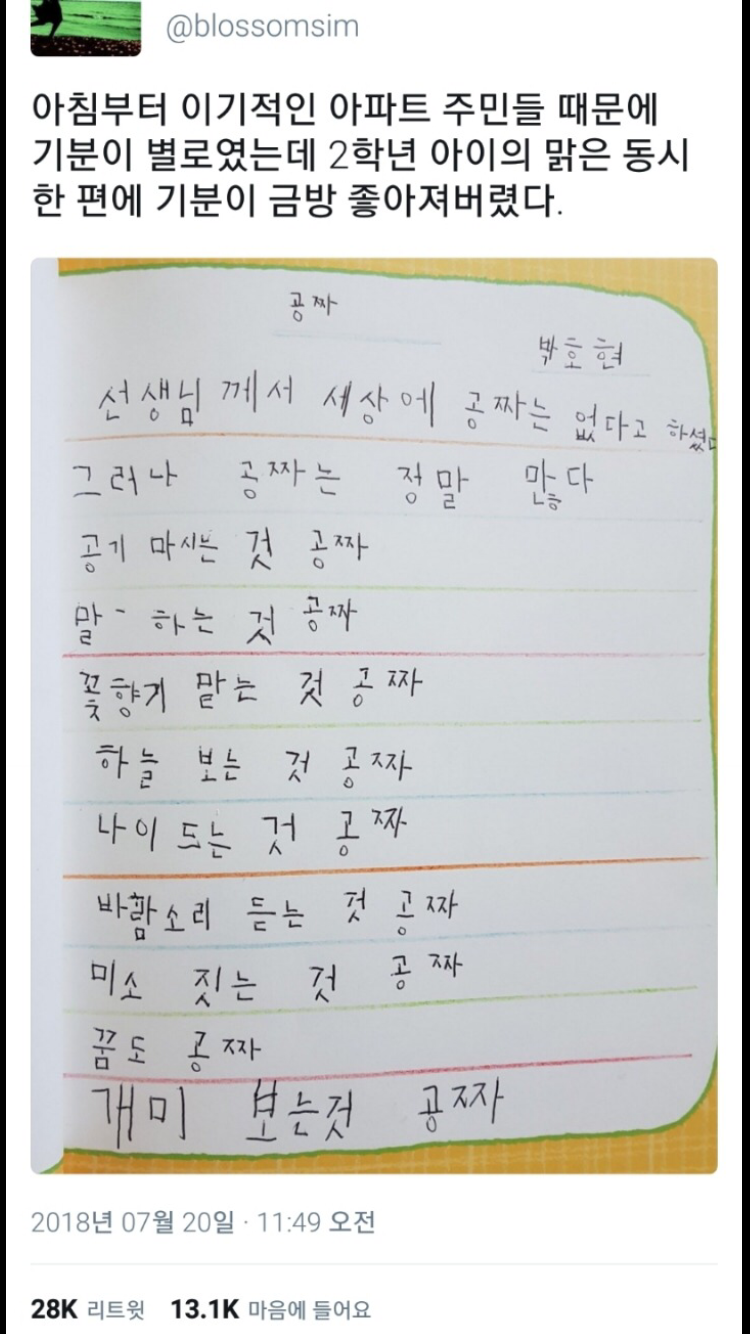 @blossomsim
아침부터 이기적인 아파트 주민들 때문에
기분이 별로였는데 2학년 아이의 맑은 동시
한 편에 기분이 금방 좋아져버렸다.
공짜
박호현
선생님께서 세상에 공짜는 없다고 하셨다
그러나 공짜는 정말 많다
공기 마시는 것 공짜
말 하는 것 공짜
꽃향기 맡는 것 공짜
하늘 보는 것 공짜
나이 드는 것 공짜
바람소리 듣는 것 공짜
미소 짓는 것 공짜
꿈도 공짜
개미 보는것 공짜
2018년 07월 20일 · 11:49 오전
28K 리트윗 13.1K 마음에 들어요